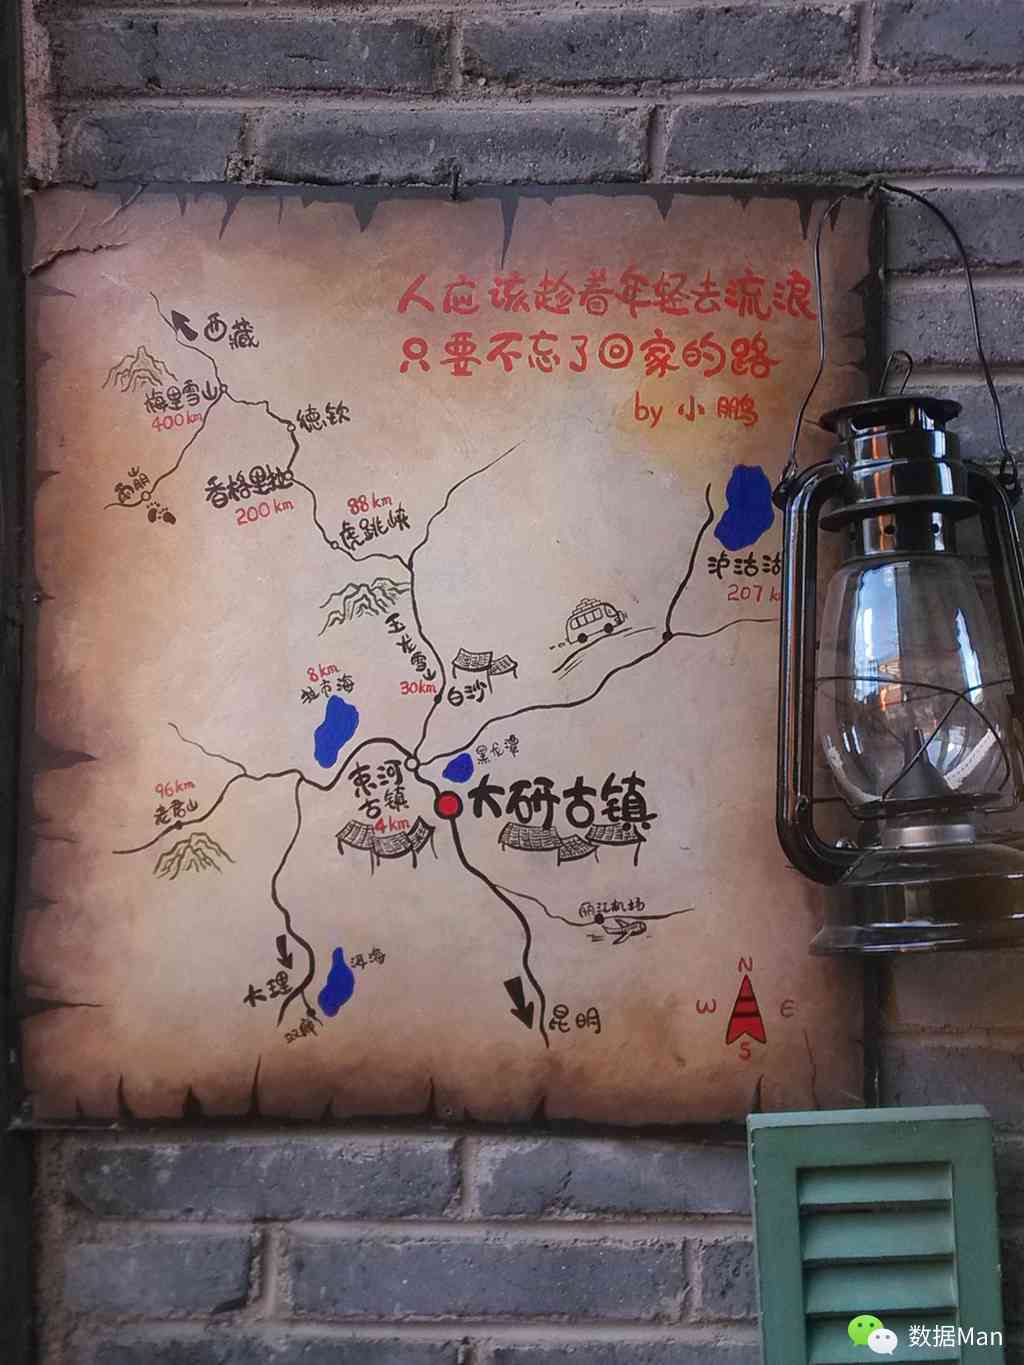 人应该趁着年轻去流浪
只要不忘了回家的路
by 小鹏
西藏
梅里雪山
400km
德钦
雨崩
香格里拉
200km
88km
虎跳峡
泸沽湖
207 k
玉龙雪山
30km
白沙
8km
拉市海
黑龙潭
束河
古镇
4km
大研古镇
96km
老君山
丽江机场
洱海
大理
双廊
昆明
N
W
E
S
数据Man